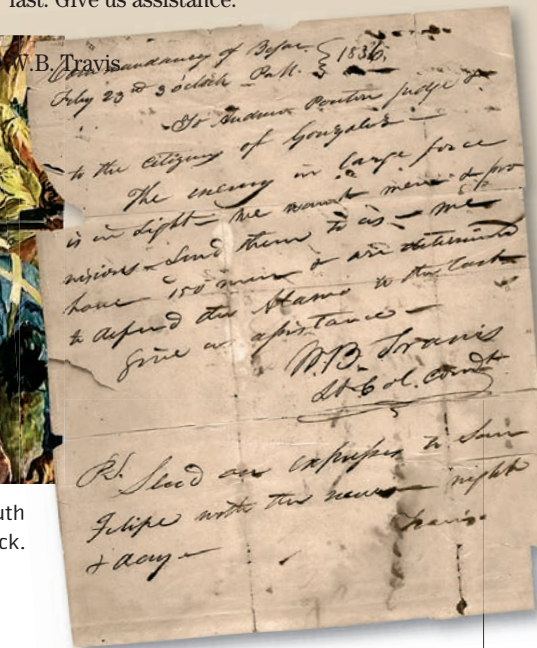 last. Give us assistance.
W.B. Travis
Commandancy of Bejar
Feby 23rd 3 oclock P.M. 1836
To Andrew Ponton Judge &
to the citizens of Gonzales
The enemy in large force
is in sight – we want men & pro
visions – Send them to us – We
have 150 men & are determined
to defend the Alamo to the last –
Give us assistance –
W.B. Travis
Lt. Col. Comdt
P.S. Send an express to San
Felipe with the news night
& day –
Travis
uth
ck.